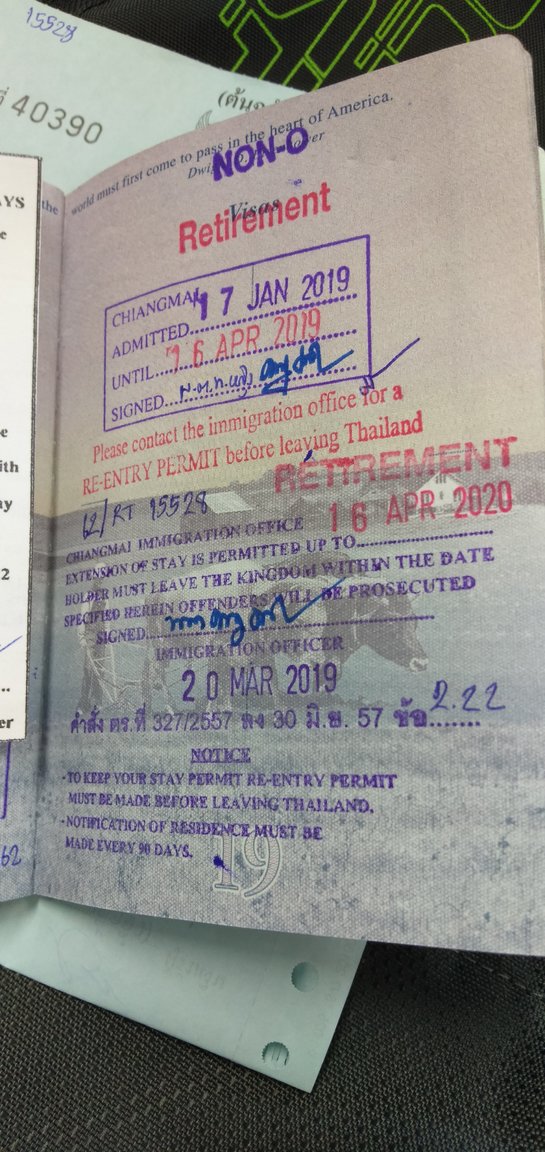 15528
ที่ 40390
(ต้น
the
world must first come to pass in the heart of America.
Dwi
NON-O
Visas
Retirement
CHIANGMAI 17 JAN 2019
ADMITTED
UNTIL 16 APR 2019
SIGNED
Please contact the immigration office for a
RE-ENTRY PERMIT before leaving Thailand
RETIREMENT
62/RT 15528
16 APR 2020
CHIANGMAI IMMIGRATION OFFICE
EXTENSION OF STAY IS PERMITTED UP TO
HOLDER MUST LEAVE THE KINGDOM WITHIN THE DATE
SPECIFIED HEREIN OFFENDERS WILL BE PROSECUTED
SIGNED
IMMIGRATION OFFICER
20 MAR 2019
คำสั่ง ตร.ที่ 327/2557 ลง 30 มิ.ย. 57 ข้อ 2.22
NOTICE
-TO KEEP YOUR STAY PERMIT RE-ENTRY PERMIT
MUST BE MADE BEFORE LEAVING THAILAND.
-NOTIFICATION OF RESIDENCE MUST BE
MADE EVERY 90 DAYS.
19
62